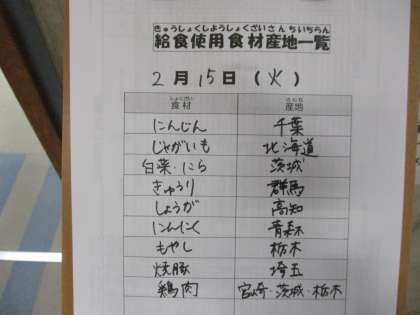 きゅうしょくしようしょくざいさんちいちらん
給食使用食材産地一覧
2月15日(火)
しょくざい さんち
食材 産地
にんじん 千葉
じゃがいも 北海道
白菜・にら 茨城
きゅうり 群馬
しょうが 高知
にんにく 青森
もやし 栃木
焼豚 埼玉
鶏肉 宮崎・茨城・栃木